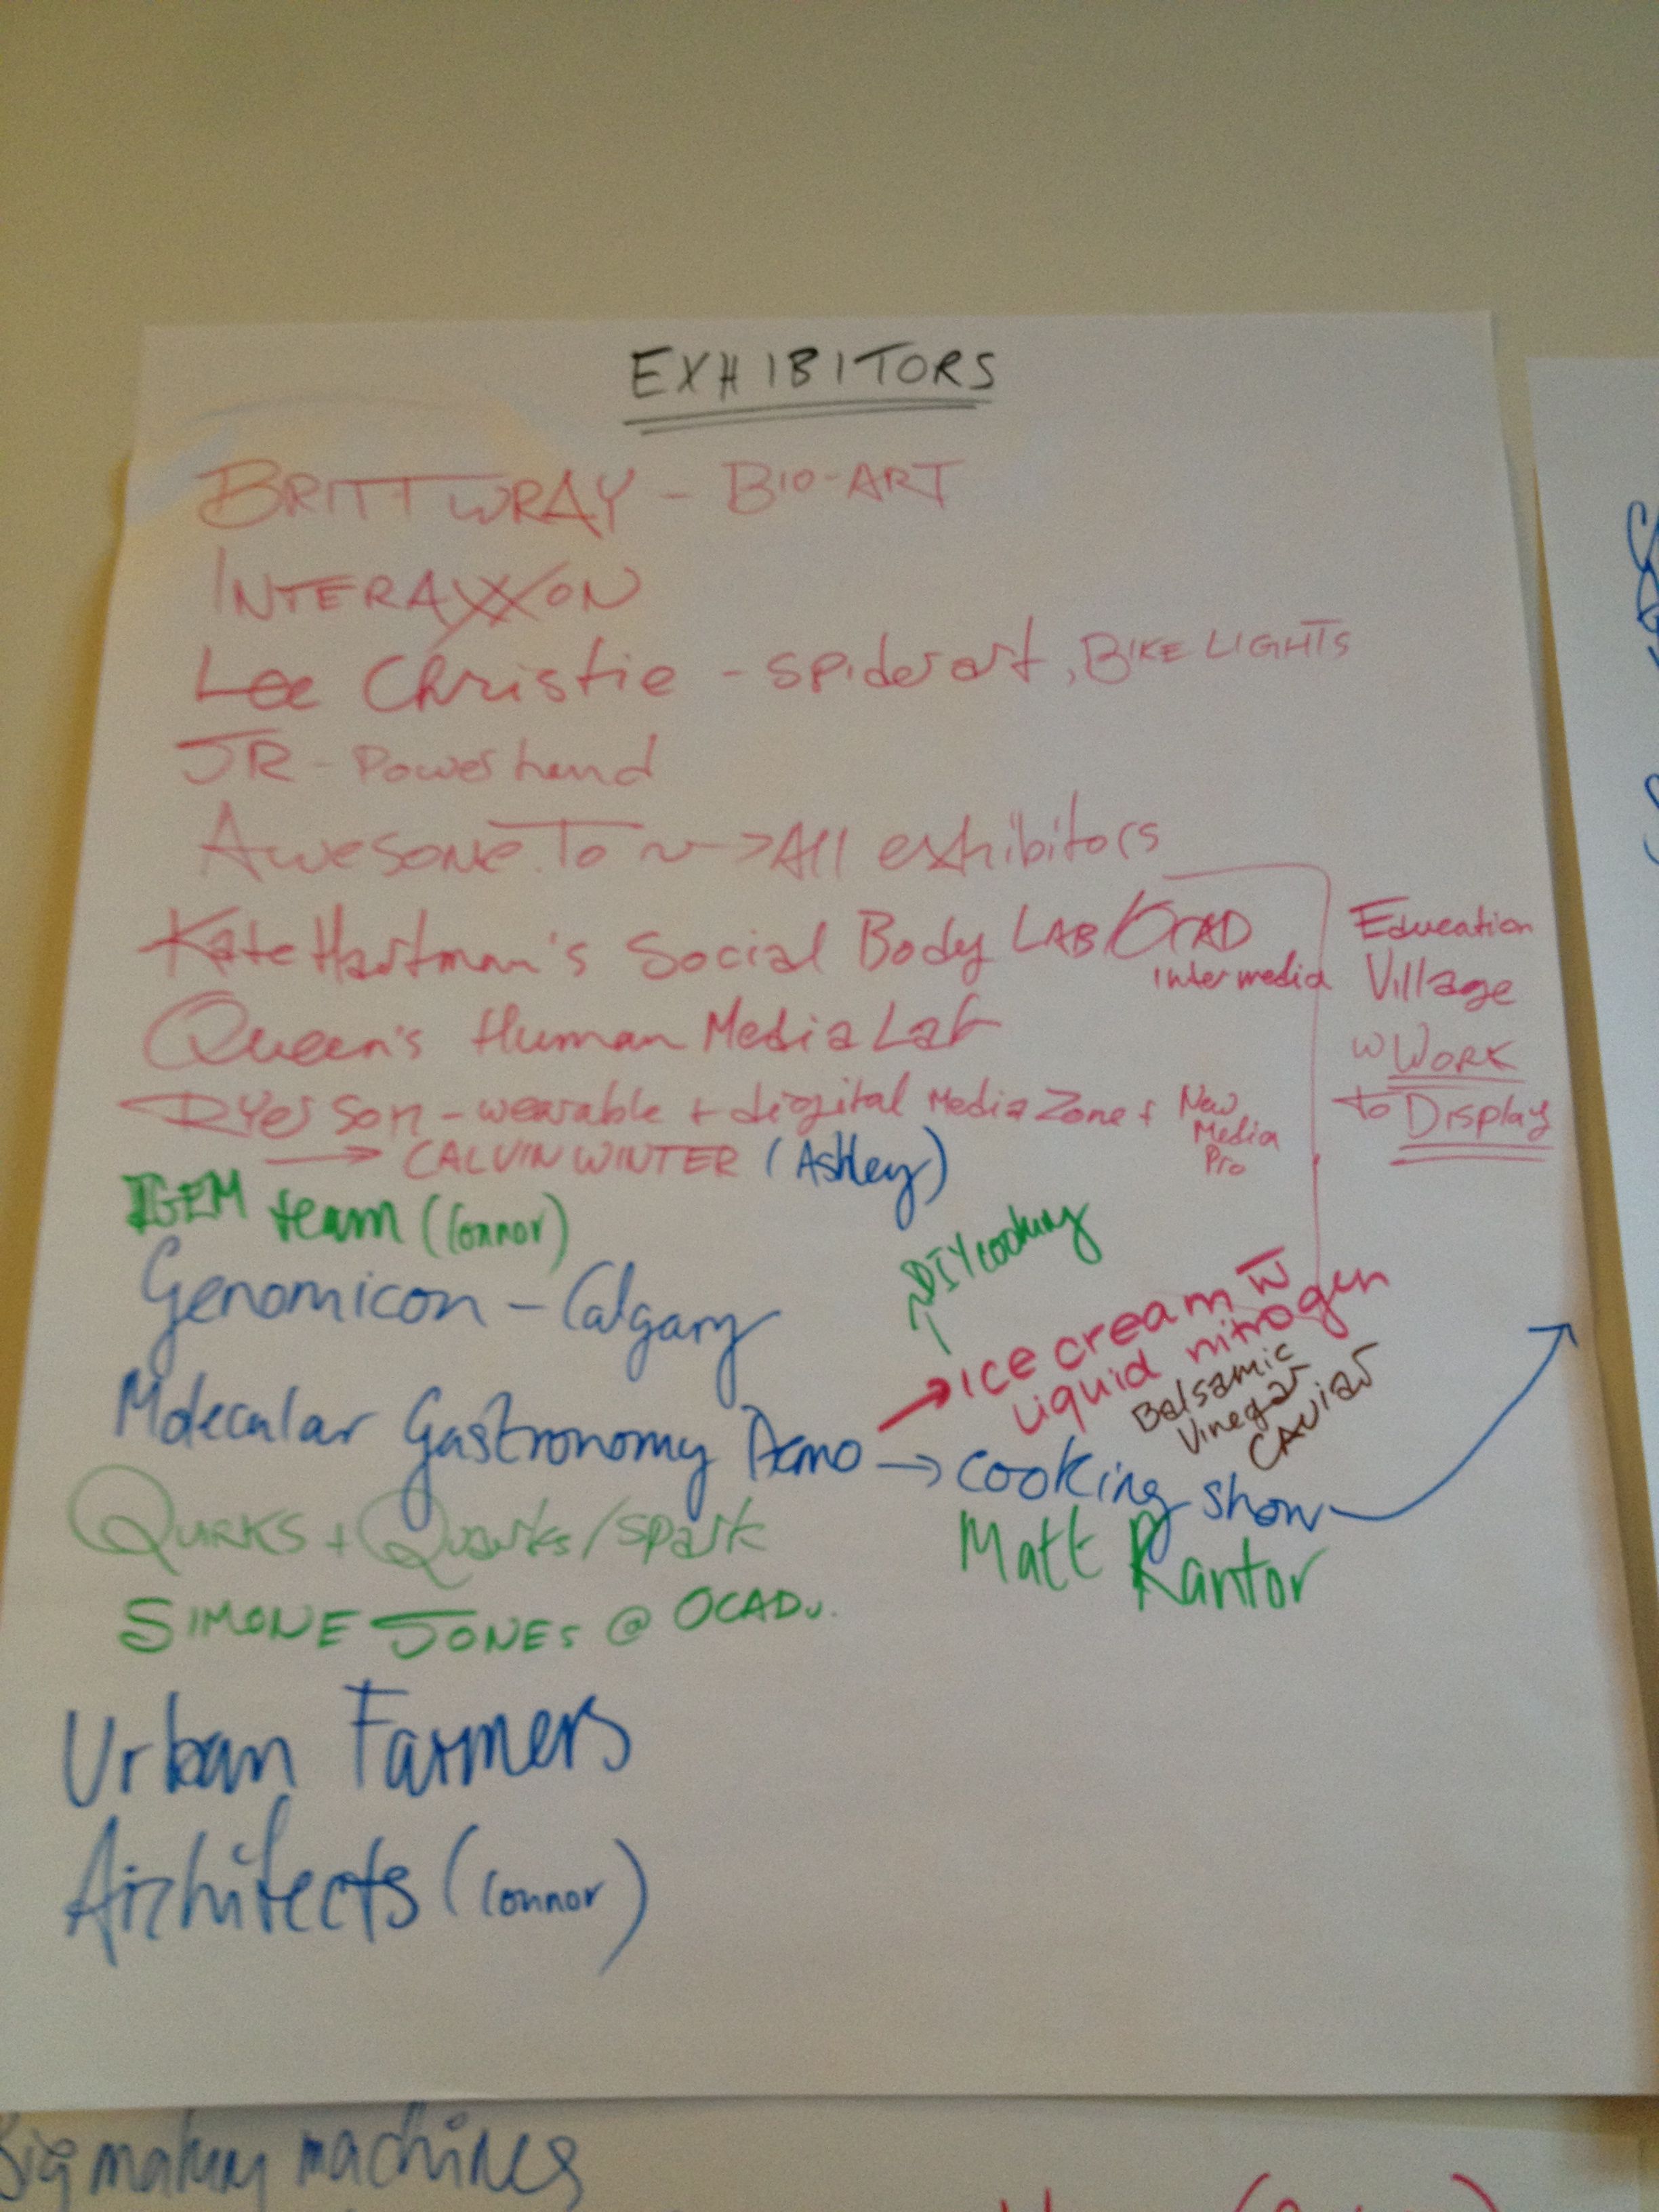 EXHIBITORS
BRITT WRAY - BIO-ART
INTERAXON
Lee Christie - spiderart, BIKE LIGHTS
JR - Power hand
Awesome. To ~ -> All exhibitors
Kate Hartman's Social Body LAB/OCAD
Intermedia
Queen's Human Media Lab
RYerson - wearable + digital Media Zone + New
Media
Pro
Education
Village
w WORK
to Display
→ CALVIN WINTER (Ashley)
IGEM team (Connor)
Genomicon - Calgary
DIY cooking
Molecular Gastronomy Demo → cooking show
→ Ice cream w
Liquid nitrogen
Balsamic
Vinegar
CAVIAR
Matt Kantor
QUIRKS + Quarks/spark
SIMONE JONES @ OCADu.
Urban Farmers
Architects (Connor)
Big making machines